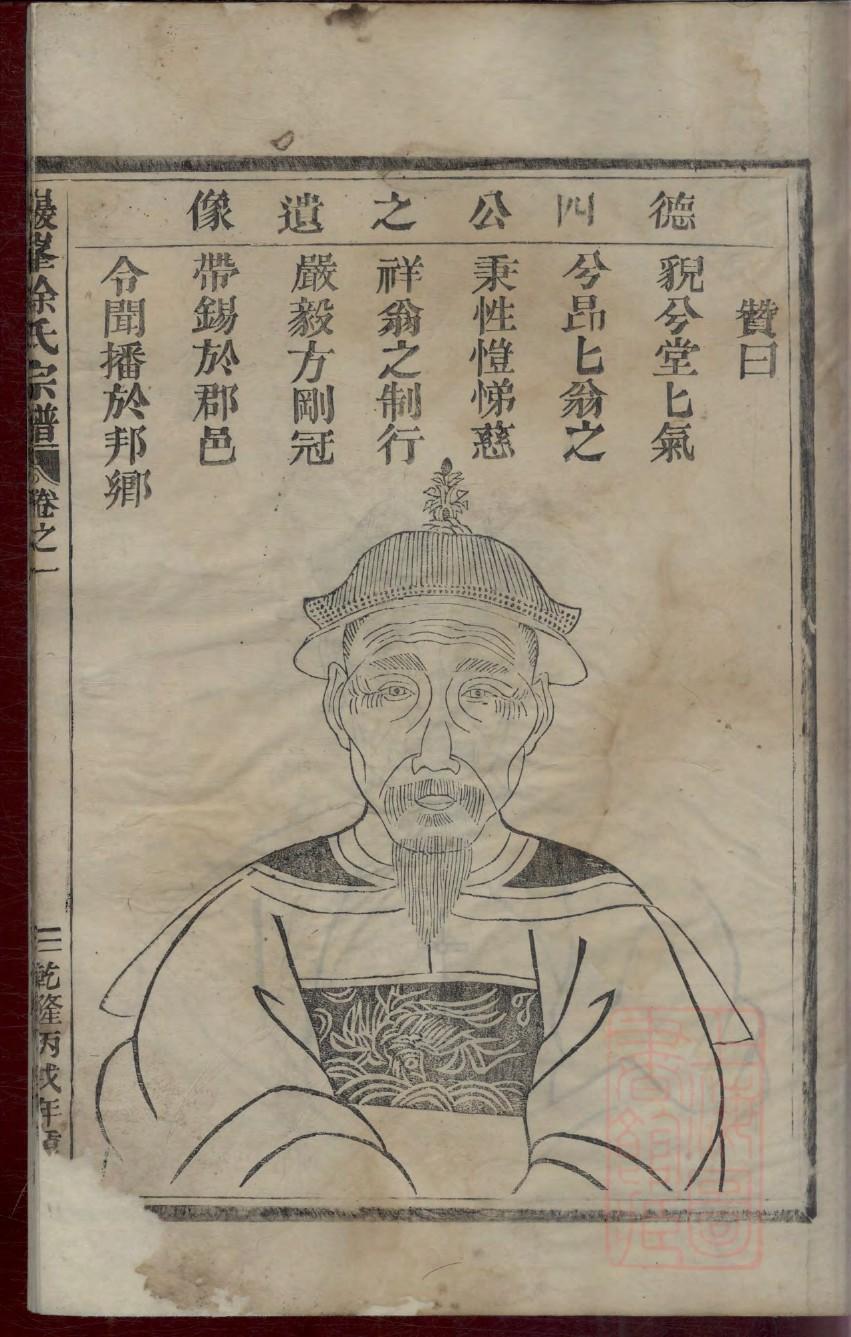 德四公之遺像
贊曰
貌兮堂匕氣
兮昂匕翁之
秉性愷悌慈
祥翁之制行
嚴毅方剛冠
帶錫於郡邑
令聞播於邦鄉
峯徐氏宗譜
卷之一
乾隆丙戌年